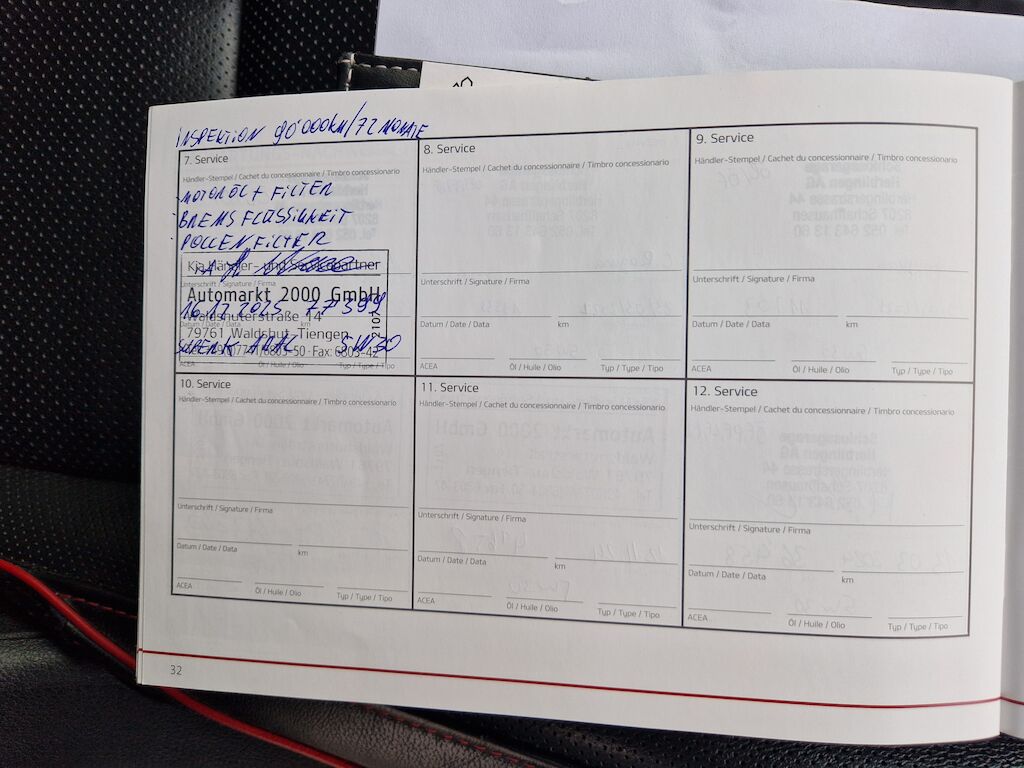 INSPEKTION 90'000KM/72 MONATE
7. Service
Händler-Stempel / Cachet du concessionnaire / Timbro concessionario
MOTORÖL + FILTER
BREMSFLÜSSIGKEIT
POLLENFILTER
Kia Händler- und Servicepartner
Unterschrift / Signature / Firma
Automarkt 2000 GmbH
Waldshuterstraße 14
Datum / Date / Data
km
79761 Waldshut-Tiengen
Fax: 6803-42
5W30
ACEA
Öl / Huile / Olio
Typ / Type / Tipo
8. Service
Händler-Stempel / Cachet du concessionnaire / Timbro concessionario
Unterschrift / Signature / Firma
Datum / Date / Data
km
ACEA
Öl / Huile / Olio
Typ / Type / Tipo
9. Service
Händler-Stempel / Cachet du concessionnaire / Timbro concessionario
Unterschrift / Signature / Firma
Datum / Date / Data
km
ACEA
Öl / Huile / Olio
Typ / Type / Tipo
10. Service
Händler-Stempel / Cachet du concessionnaire / Timbro concessionario
Unterschrift / Signature / Firma
Datum / Date / Data
km
ACEA
Öl / Huile / Olio
Typ / Type / Tipo
11. Service
Händler-Stempel / Cachet du concessionnaire / Timbro concessionario
Unterschrift / Signature / Firma
Datum / Date / Data
km
ACEA
Öl / Huile / Olio
Typ / Type / Tipo
12. Service
Händler-Stempel / Cachet du concessionnaire / Timbro concessionario
Unterschrift / Signature / Firma
Datum / Date / Data
km
ACEA
Öl / Huile / Olio
Typ / Type / Tipo
32